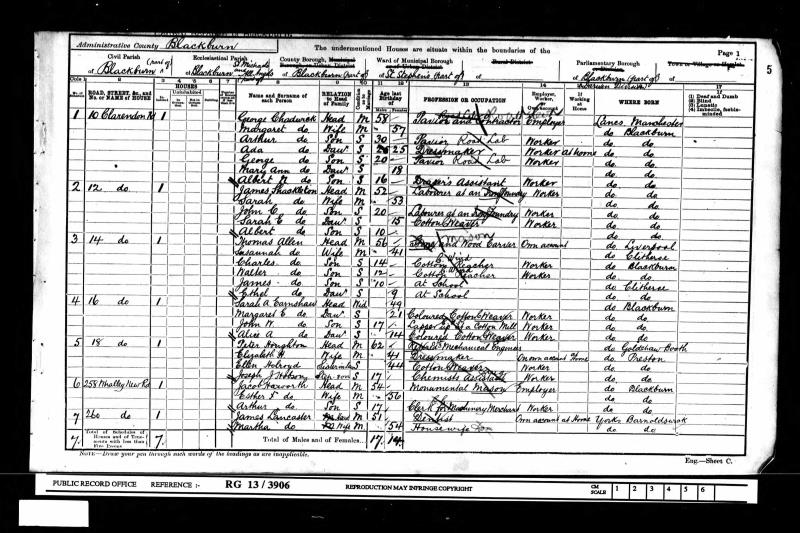 Administrative County Blackburn
The undermentioned Houses are situate within the boundaries of the
Page 1
Civil Parish (part of)
Ecclesiastical Parish
County Borough, Municipal
Ward of Municipal Borough
Rural District
Parliamentary Borough
Town or Village or Hamlet
5
at Blackburn
at Blackburn
at Blackburn (part of)
at St Stephen's (part of)
at
at Blackburn (part of)
ROAD, STREET, &c., and No. or NAME of HOUSE
HOUSES
Name and Surname of each Person
RELATION to Head of Family
Age last Birthday of
PROFESSION OR OCCUPATION
Employer, Worker,
If Working at Home
WHERE BORN
(1) Deaf and Dumb
(2) Blind
(3) Lunatic
(4) Imbecile, feeble-minded
1 10 Clarendon Rd 1 George Chadwick Head M 58 Contractor Employer Lancs. Manchester
Margaret do Wife M 57 do Blackburn
Arthur do Son S 30 Pavior Road Lab Worker do do
Ada do Daur S 25 Dressmaker Worker At home do do
George do Son S 20 Pavior Road Lab Worker do do
Mary Ann do Daur S 18 do do
Albert do Son S 16 Draper's Assistant Worker do do
2 12 do 1 James Shackleton Head M 52 Labourer at an Iron Foundry Worker do do
Sarah do Wife M 53 do do
John C. do Son S 20 Labourer at an Iron Foundry Worker do do
Sarah E do Daur S 15 Cotton Weaver Worker do do
Albert do Son S 10 do do
3 14 do 1 Thomas Allen Head M 56 and Wood Carrier Own account do Liverpool
Susannah do Wife M 41 do Clitheroe
Charles do Son S 14 Cotton Reacher Worker do Blackburn
Walter do Son S 12 Cotton Reacher Worker do do
James do Son S 10 At School do Clitheroe
Ethel do Daur S 9 At School do do
4 16 do 1 Sarah A Earnshaw Head Wid 49 do Blackburn
Margaret E do Daur S 21 Coloured Cotton Weaver Worker do do
John W. do Son S 17 at a Cotton Mill Worker do do
Alice A do Daur S 14 Coloured Cotton Weaver Worker do do
5 18 do 1 Peter Houghton Head M 62 Mechanical Engineer do Goldshaw Booth
Elizabeth H Wife M 41 Dressmaker On own account Home do Preston
Ellen Holroyd S 44 Cotton Weaver Worker do do
Joseph J Hobson S 17 Chemists Assistant Worker do do
6 258 Whalley New Rd 1 Jacob Haworth Head M 54 Monumental Mason Employer do Blackburn
Esther F do Wife M 56 do do
Arthur do Son S 17 Clerk for Machinery Merchant Worker do do
7 260 do 1 James Lancaster Head M 51 Own account At Home Yorks Barnoldswick
Martha do Wife M 54 Housewife do do
7 Total of Schedules of Houses and of Tenements with less than Five Rooms 7 Total of Males and of Females... 17 14
NOTE—Draw your pen through such words of the headings as are inapplicable.
Eng.—Sheet C.
PUBLIC RECORD OFFICE REFERENCE :- RG 13 / 3906 REPRODUCTION MAY INFRINGE COPYRIGHT CM SCALE 1 2 3 4 5 6